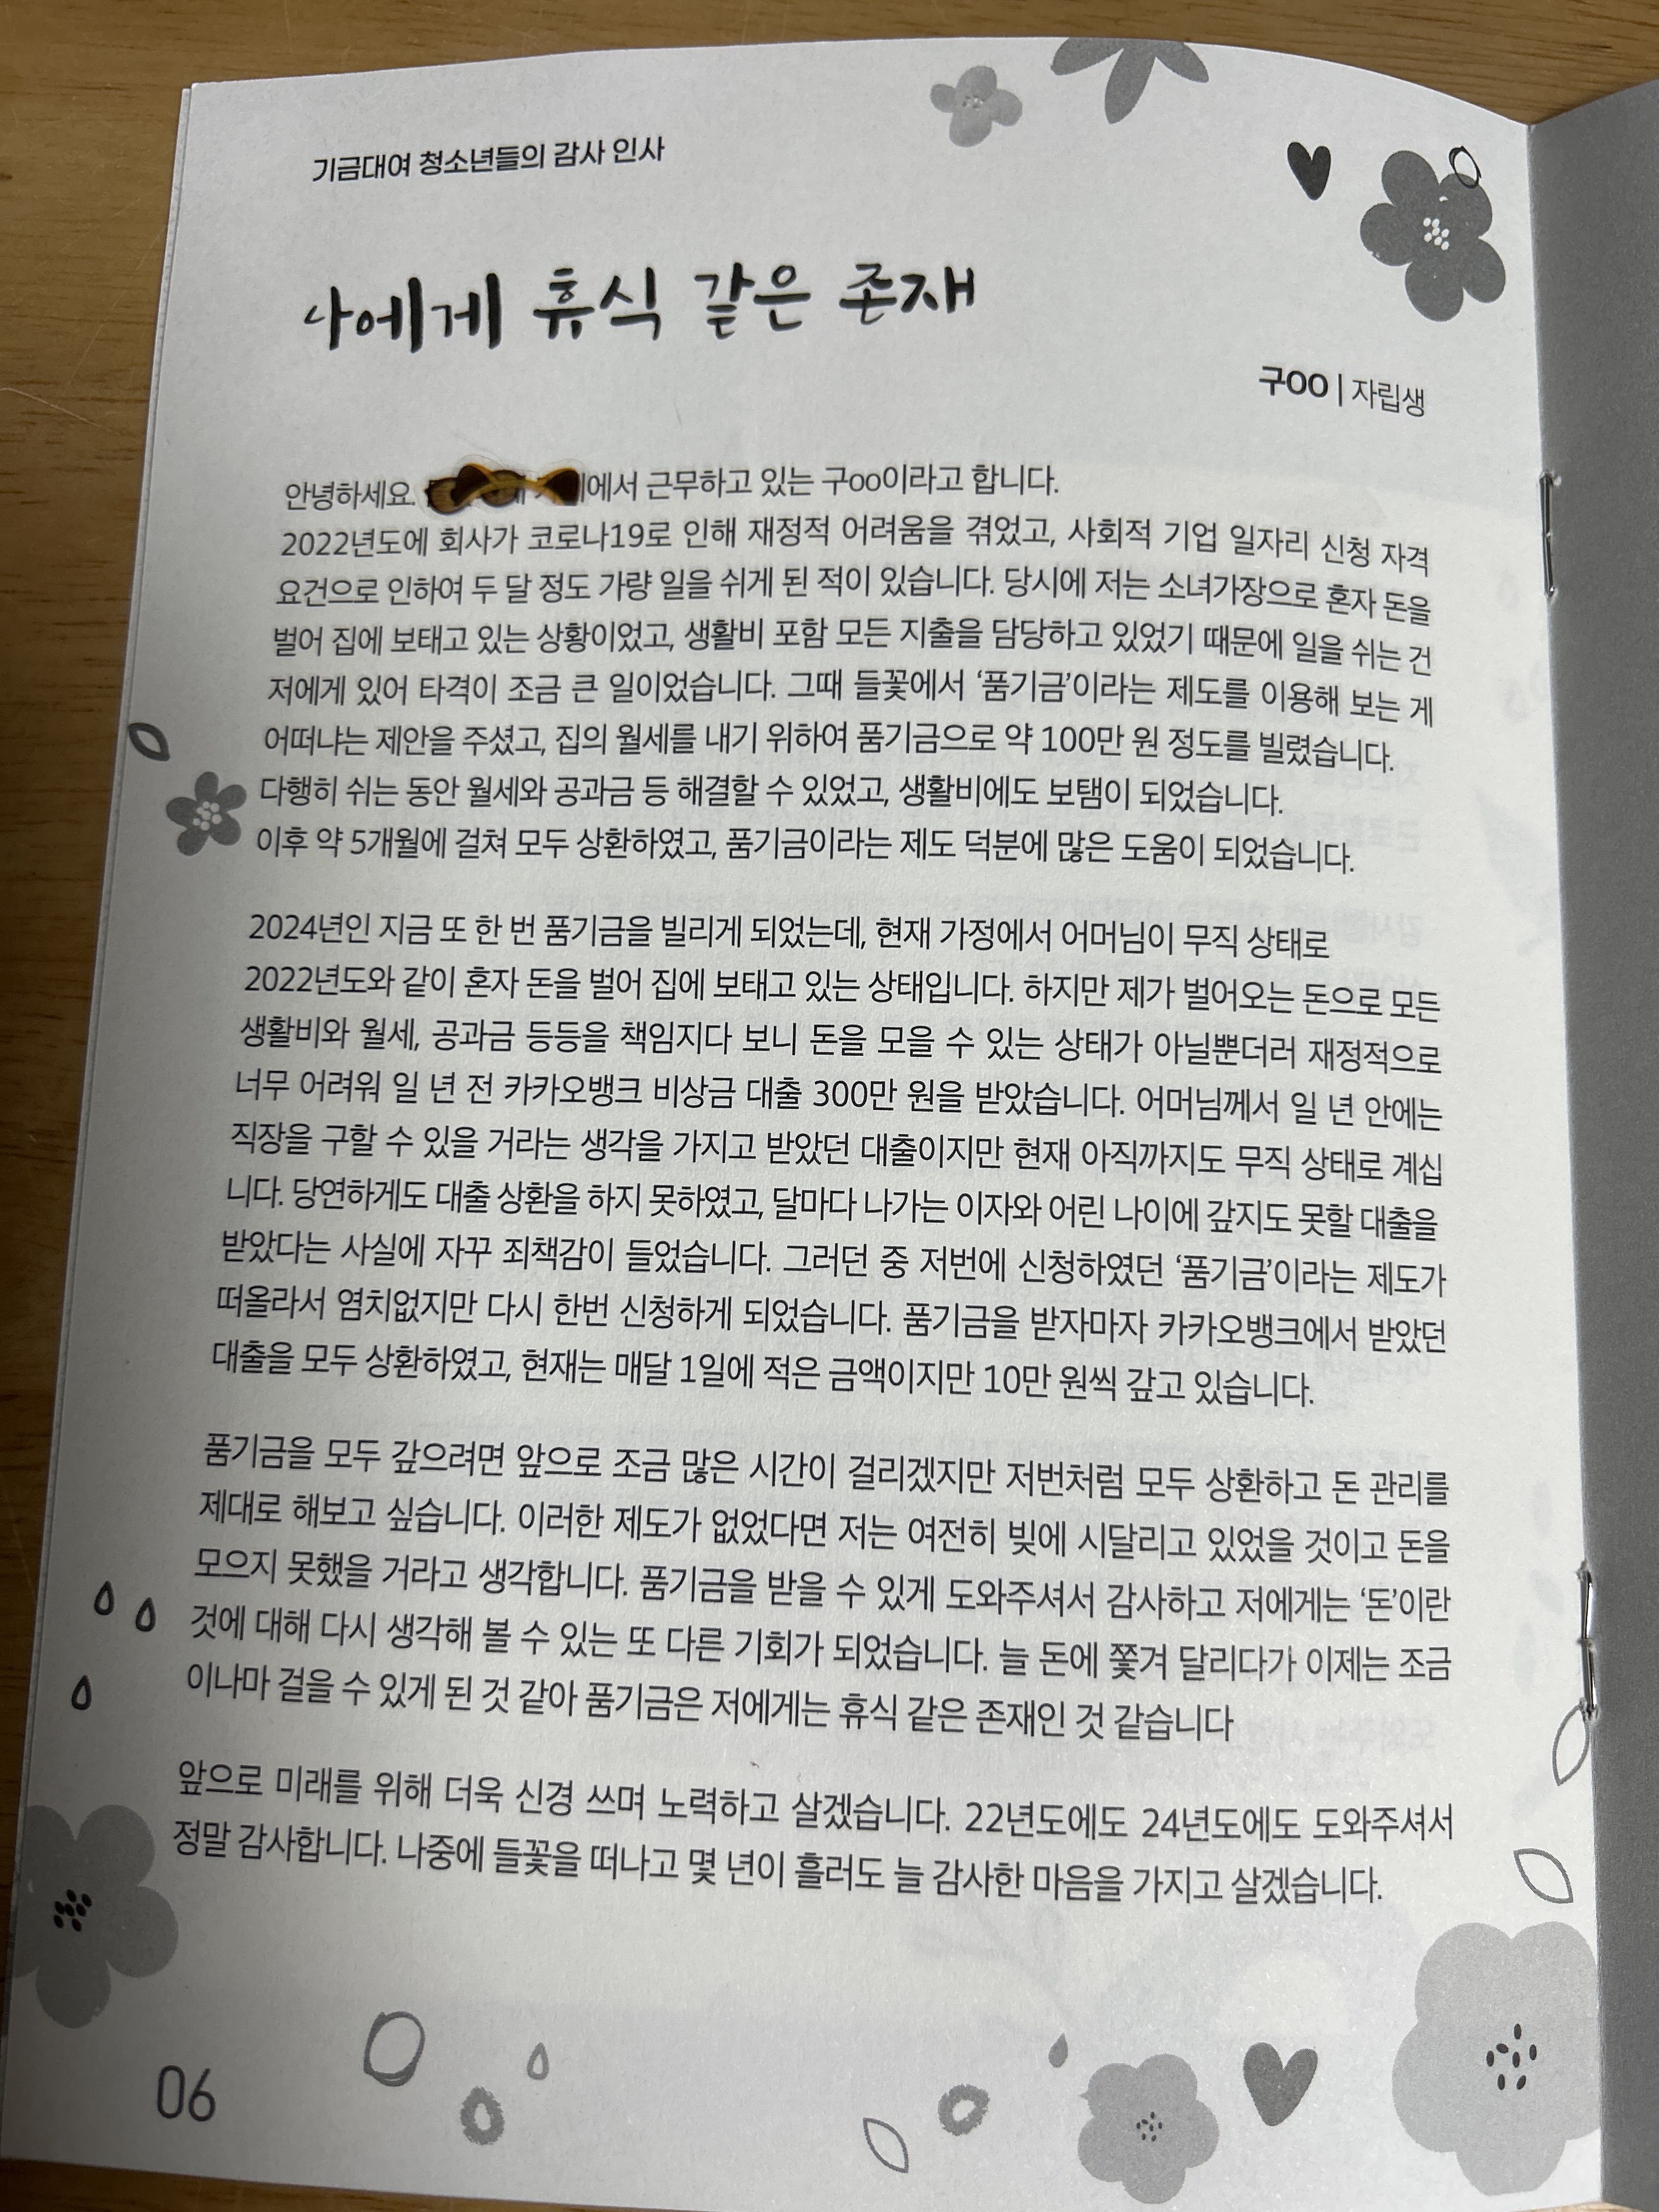 기금대여 청소년들의 감사 인사
나에게 휴식 같은 존재
구OO | 자립생
안녕하세요. 에서 근무하고 있는 구oo이라고 합니다.
2022년도에 회사가 코로나19로 인해 재정적 어려움을 겪었고, 사회적 기업 일자리 신청 자격
요건으로 인하여 두 달 정도 가량 일을 쉬게 된 적이 있습니다. 당시에 저는 소녀가장으로 혼자 돈을
벌어 집에 보태고 있는 상황이었고, 생활비 포함 모든 지출을 담당하고 있었기 때문에 일을 쉬는 건
저에게 있어 타격이 조금 큰 일이었습니다. 그때 들꽃에서 ‘품기금’이라는 제도를 이용해 보는 게
어떠냐는 제안을 주셨고, 집의 월세를 내기 위하여 품기금으로 약 100만 원 정도를 빌렸습니다.
다행히 쉬는 동안 월세와 공과금 등 해결할 수 있었고, 생활비에도 보탬이 되었습니다.
이후 약 5개월에 걸쳐 모두 상환하였고, 품기금이라는 제도 덕분에 많은 도움이 되었습니다.
2024년인 지금 또 한 번 품기금을 빌리게 되었는데, 현재 가정에서 어머님이 무직 상태로
2022년도와 같이 혼자 돈을 벌어 집에 보태고 있는 상태입니다. 하지만 제가 벌어오는 돈으로 모든
생활비와 월세, 공과금 등등을 책임지다 보니 돈을 모을 수 있는 상태가 아닐뿐더러 재정적으로
너무 어려워 일 년 전 카카오뱅크 비상금 대출 300만 원을 받았습니다. 어머님께서 일 년 안에는
직장을 구할 수 있을 거라는 생각을 가지고 받았던 대출이지만 현재 아직까지도 무직 상태로 계십
니다. 당연하게도 대출 상환을 하지 못하였고, 달마다 나가는 이자와 어린 나이에 갚지도 못할 대출을
받았다는 사실에 자꾸 죄책감이 들었습니다. 그러던 중 저번에 신청하였던 ‘품기금’이라는 제도가
떠올라서 염치없지만 다시 한번 신청하게 되었습니다. 품기금을 받자마자 카카오뱅크에서 받았던
대출을 모두 상환하였고, 현재는 매달 1일에 적은 금액이지만 10만 원씩 갚고 있습니다.
품기금을 모두 갚으려면 앞으로 조금 많은 시간이 걸리겠지만 저번처럼 모두 상환하고 돈 관리를
제대로 해보고 싶습니다. 이러한 제도가 없었다면 저는 여전히 빚에 시달리고 있었을 것이고 돈을
모으지 못했을 거라고 생각합니다. 품기금을 받을 수 있게 도와주셔서 감사하고 저에게는 ‘돈’이란
것에 대해 다시 생각해 볼 수 있는 또 다른 기회가 되었습니다. 늘 돈에 쫓겨 달리다가 이제는 조금
이나마 걸을 수 있게 된 것 같아 품기금은 저에게는 휴식 같은 존재인 것 같습니다
앞으로 미래를 위해 더욱 신경 쓰며 노력하고 살겠습니다. 22년도에도 24년도에도 도와주셔서
정말 감사합니다. 나중에 들꽃을 떠나고 몇 년이 흘러도 늘 감사한 마음을 가지고 살겠습니다.
06